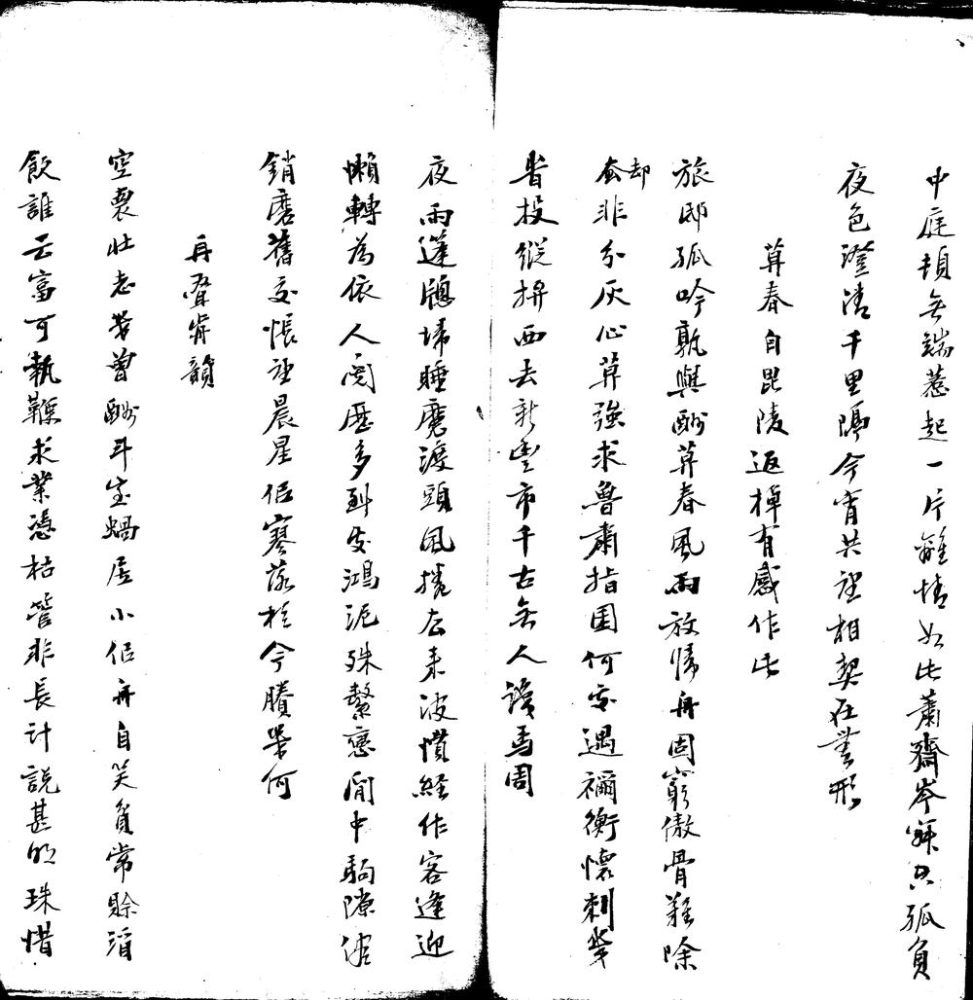 中庭頓無端惹起一片離情如此蕭齋岑寂只孤負
夜色澄清千里隔今宵共望相契在無形
算春自毘陵返棹有感作此
旅邸孤吟孰與酬算春風雨放歸舟固窮傲骨難除
却非分灰心算強求魯肅指囷何處遇禰衡懷刺幾
眷投縱拚西去新豐市千古無人識馬周
夜雨篷窗掃睡魔渡頭風捲去來波慣經作客逢迎
懶轉為依人閱歷多到處鴻泥殊繫戀閒中駒隙
銷磨舊交悵望晨星似寥落於今賸幾何
再疊前韻
空裹壯志算曾酬斗室蝸居小似舟自笑負常賒酒
飲誰云富可執鞭求業憑枯管非長計說甚明珠惜